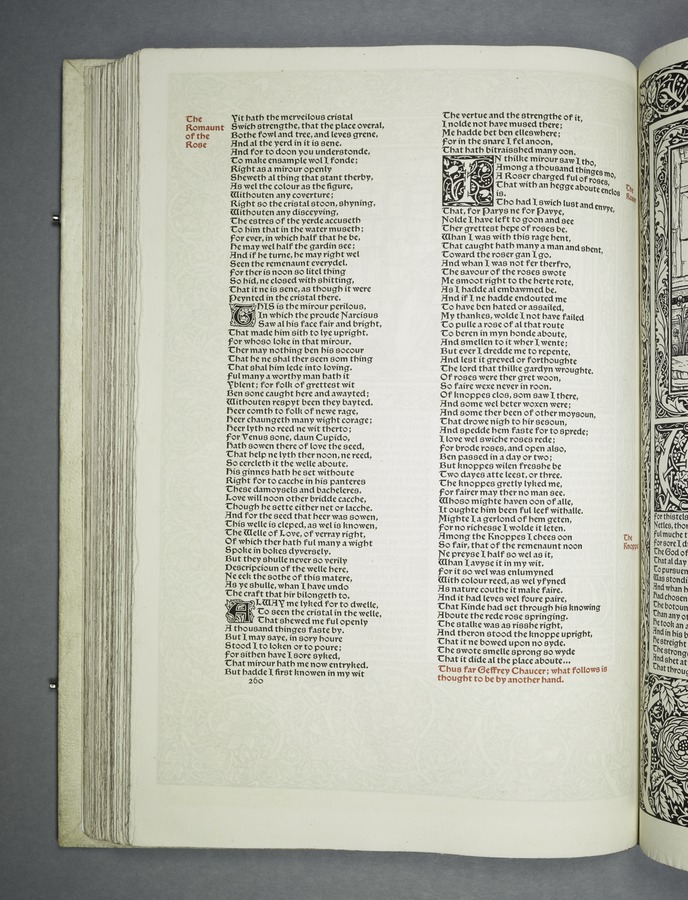 The
Romaunt
of the
Rose
Yit hath the merveilous cristal
Swich strengthe, that the place overal,
Bothe fowl and tree, and leves grene,
And al the yerd in it is sene.
And for to doon you understonde,
To make ensample wol I fonde;
Right as a mirour openly
Sheweth al thing that stant therby,
As wel the colour as the figure,
Withouten any coverture;
Right so the cristal stoon, shyning,
Withouten any discevyng,
The estres of the yerde accuseth
To him that in the water museth;
For ever, in which half that he be,
He may wel half the gardin see;
And if he turne, he may right wel
Seen the remenaunt everydel.
For ther is noon so litel thing
So hid, ne closed with shitting,
That it ne is sene, as though it were
Peynted in the cristal there.
THIS is the mirour perilous,
In which the proude Narcisus
Saw al his face fair and bright,
That made him sith to lye upright.
For whoso loke in that mirour,
Ther may nothing ben his socour
That he ne shal ther seen som thing
That shal him lede into loving.
Ful many a worthy man hath it
Yblent; for folk of grettest wit
Ben sone caught here and awayted;
Withouten respyt been they bayted.
Heer comth to folk of newe rage,
Heer chaungeth many wight corage;
Heer lyth no reed ne wit therto;
For Venus sone, daun Cupido,
Hath sowen there of love the seed,
That help ne lyth ther noon, ne reed,
So cercleth it the welle aboute.
His ginnes hath he set withoute
Right for to cacche in his panteres
These damoysels and bacheleres.
Love will noon other bridde cacche,
Though he sette either net or lacche.
And for the seed that heer was sowen,
This welle is cleped, as wel is knowen,
The Welle of Love, of verray right,
Of which ther hath ful many a wight
Spoke in bokes dyversely.
But they shulle never so verily
Descripcioun of the welle here,
Ne eek the sothe of this matere,
As ye shulle, whan I have undo
The craft that hir bilongeth to.
ALWAY me lyked for to dwelle,
To seen the cristal in the welle,
That shewed me ful openly
A thousand thinges faste by.
But I may saye, in sory houre
Stood I to loken or to poure;
For sithen have I sore syked,
That mirour hath me now entryked.
But hadde I first knowen in my wit
260
The vertue and the strengthe of it,
I nolde not have mused there;
Me hadde bet ben elleswhere;
For in the snare I fel anoon,
That hath bitraisshed many oon.
IN thilke mirour saw I tho,
Among a thousand thinges mo,
A Roser charged ful of roses,
That with an hegge aboute enclos
is.
Tho had I swich lust and envye,
That, for Parys ne for Pavye,
Nolde I have left to goon and see
Ther grettest hepe of roses be.
Whan I was with this rage hent,
That caught hath many a man and shent,
Toward the roser gan I go.
And whan I was not fer therfro,
The savour of the roses swote
Me smoot right to the herte rote,
As I hadde al embawmed be.
And if I ne hadde endouted me
To have ben hated or assailed,
My thankes, wolde I not have failed
To pulle a rose of al that route
To beren in myn honde aboute,
And smellen to it wher I wente;
But ever I dredde me to repente,
And lest it greved or forthoughte
The lord that thilke gardyn wroughte.
Of roses were ther gret woon,
So faire wexe never in roon.
Of knoppes clos, som saw I there,
And some wel beter woxen were;
And some ther been of other moysoun,
That drowe nigh to hir sesoun,
And spedde hem faste for to sprede;
I love wel swiche roses rede;
For brode roses, and open also,
Ben passed in a day or two;
But knoppes wilen fresshe be
Two dayes atte leest, or three.
The knoppes gretly lyked me,
For fairer may ther no man see.
Whoso mighte haven oon of alle,
It oughte him been ful leef withalle.
Mighte I a gerlond of hem geten,
For no richesse I wolde it leten.
Among the Knoppes I chees oon
So fair, that of the remenaunt noon
Ne preyse I half so wel as it,
Whan I avyse it in my wit.
For it so wel was enlumyned
With colour reed, as wel yfyned
As nature couthe it make faire.
And it had leves wel foure paire,
That Kinde had set through his knowing
Aboute the rede rose springing.
The stalke was as risshe right,
And theron stood the knoppe upright,
That it ne bowed upon no syde.
The swote smelle sprong so wyde
That it dide al the place aboute...
Thus far Geffrey Chaucer; what follows is
thought to be by another hand.